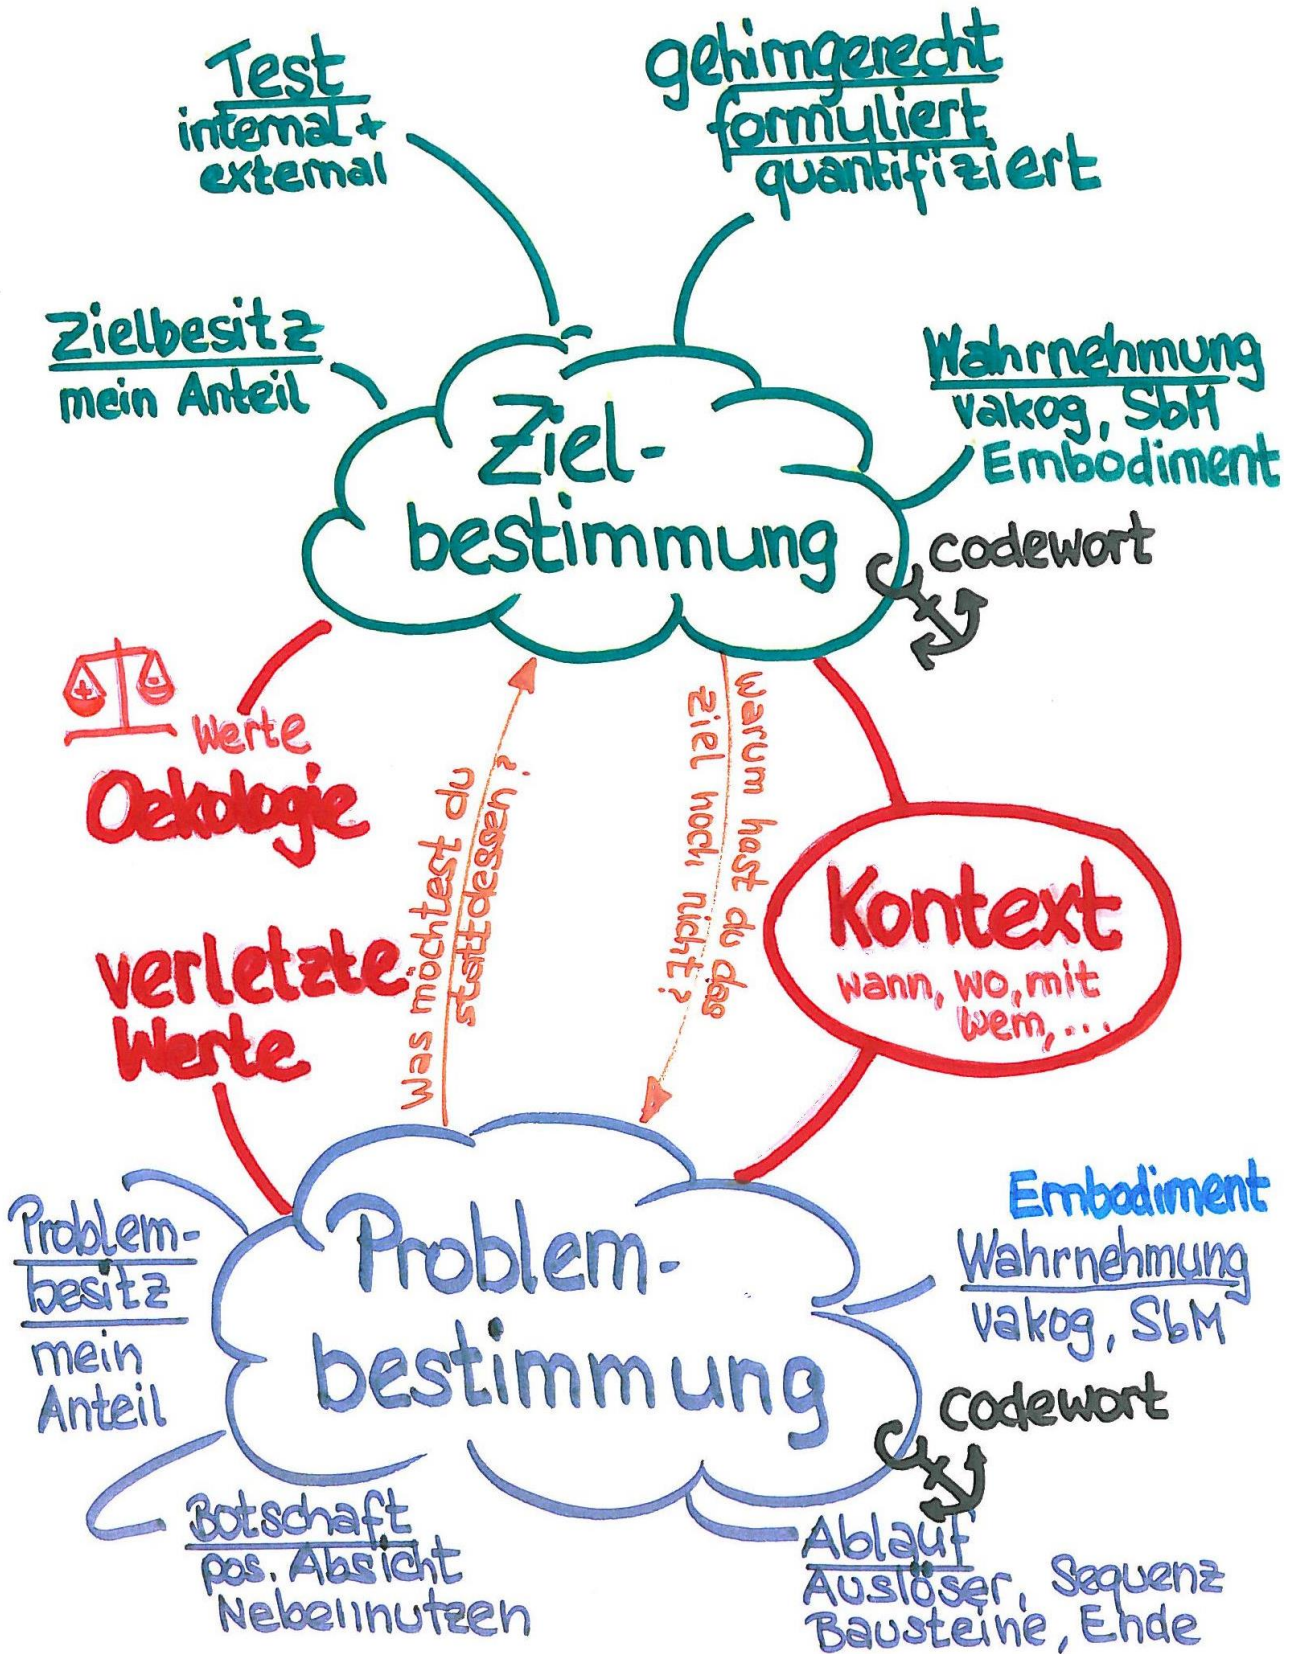 Test
internal +
external
gehirngerecht
formuliert
quantifiziert
Zielbesitz
mein Anteil
Wahrnehmung
vakog, SbM
Embodiment
Ziel-
bestimmung
Codewort
+
-
Werte
Oekologie
Was möchtest du
stattdessen?
warum hast du das
Ziel noch nicht?
Kontext
wann, wo, mit
wem, ...
verletzte
Werte
Problem-
besitz
mein
Anteil
Problem-
bestimmung
Embodiment
Wahrnehmung
vakog, SbM
Codewort
Botschaft
pos. Absicht
Nebennutzen
Ablauf
Auslöser, Sequenz
Bausteine, Ende